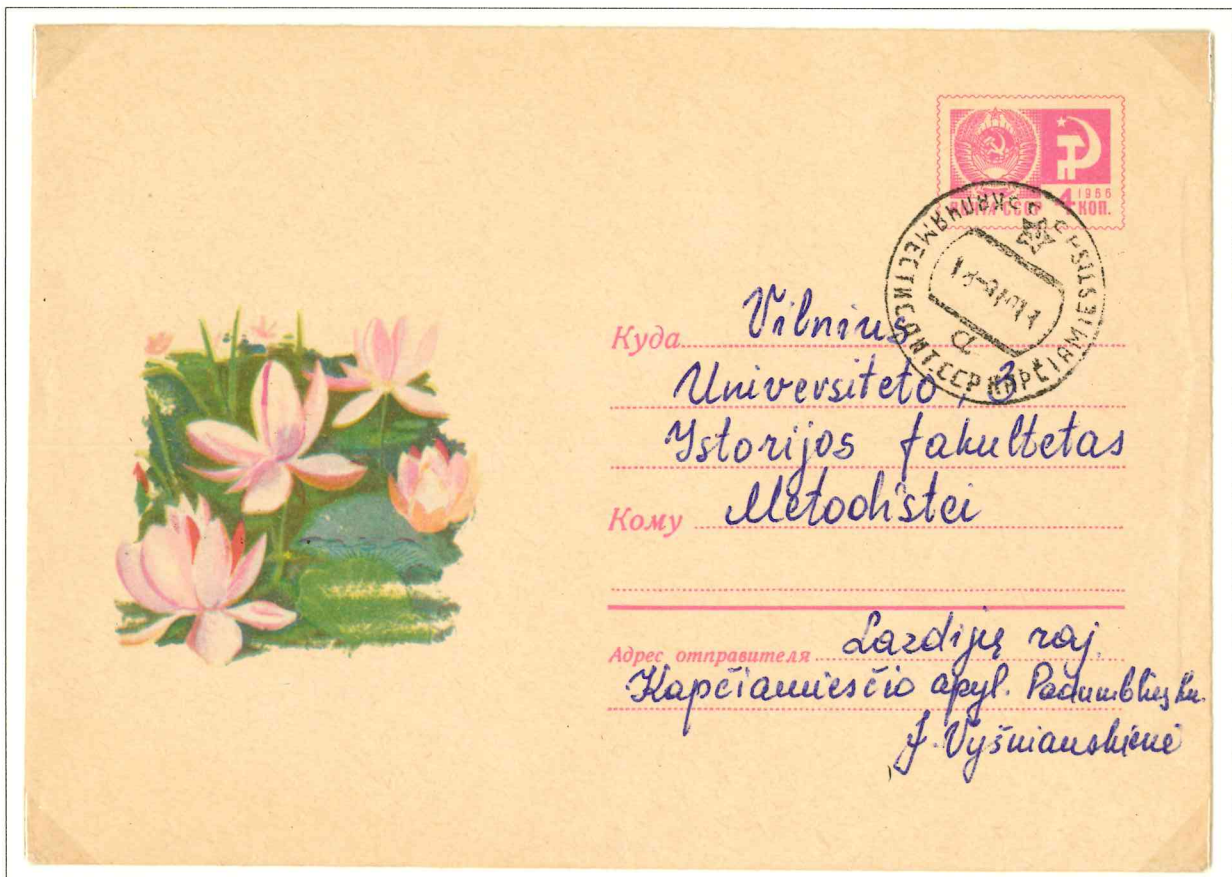 ПОЧТА СССР 4 1966 КОП.
КАПЧЯМЕСТИС ЛИТ.ССР KAPČIAMIESTIS
Куда Vilnius
Universiteto, 3
Istorijos fakultetas
Кому Metodistei
Адрес отправителя Lazdijų raj.
Kapčiamiesčio apyl. km.
J. Vyšniauskienė